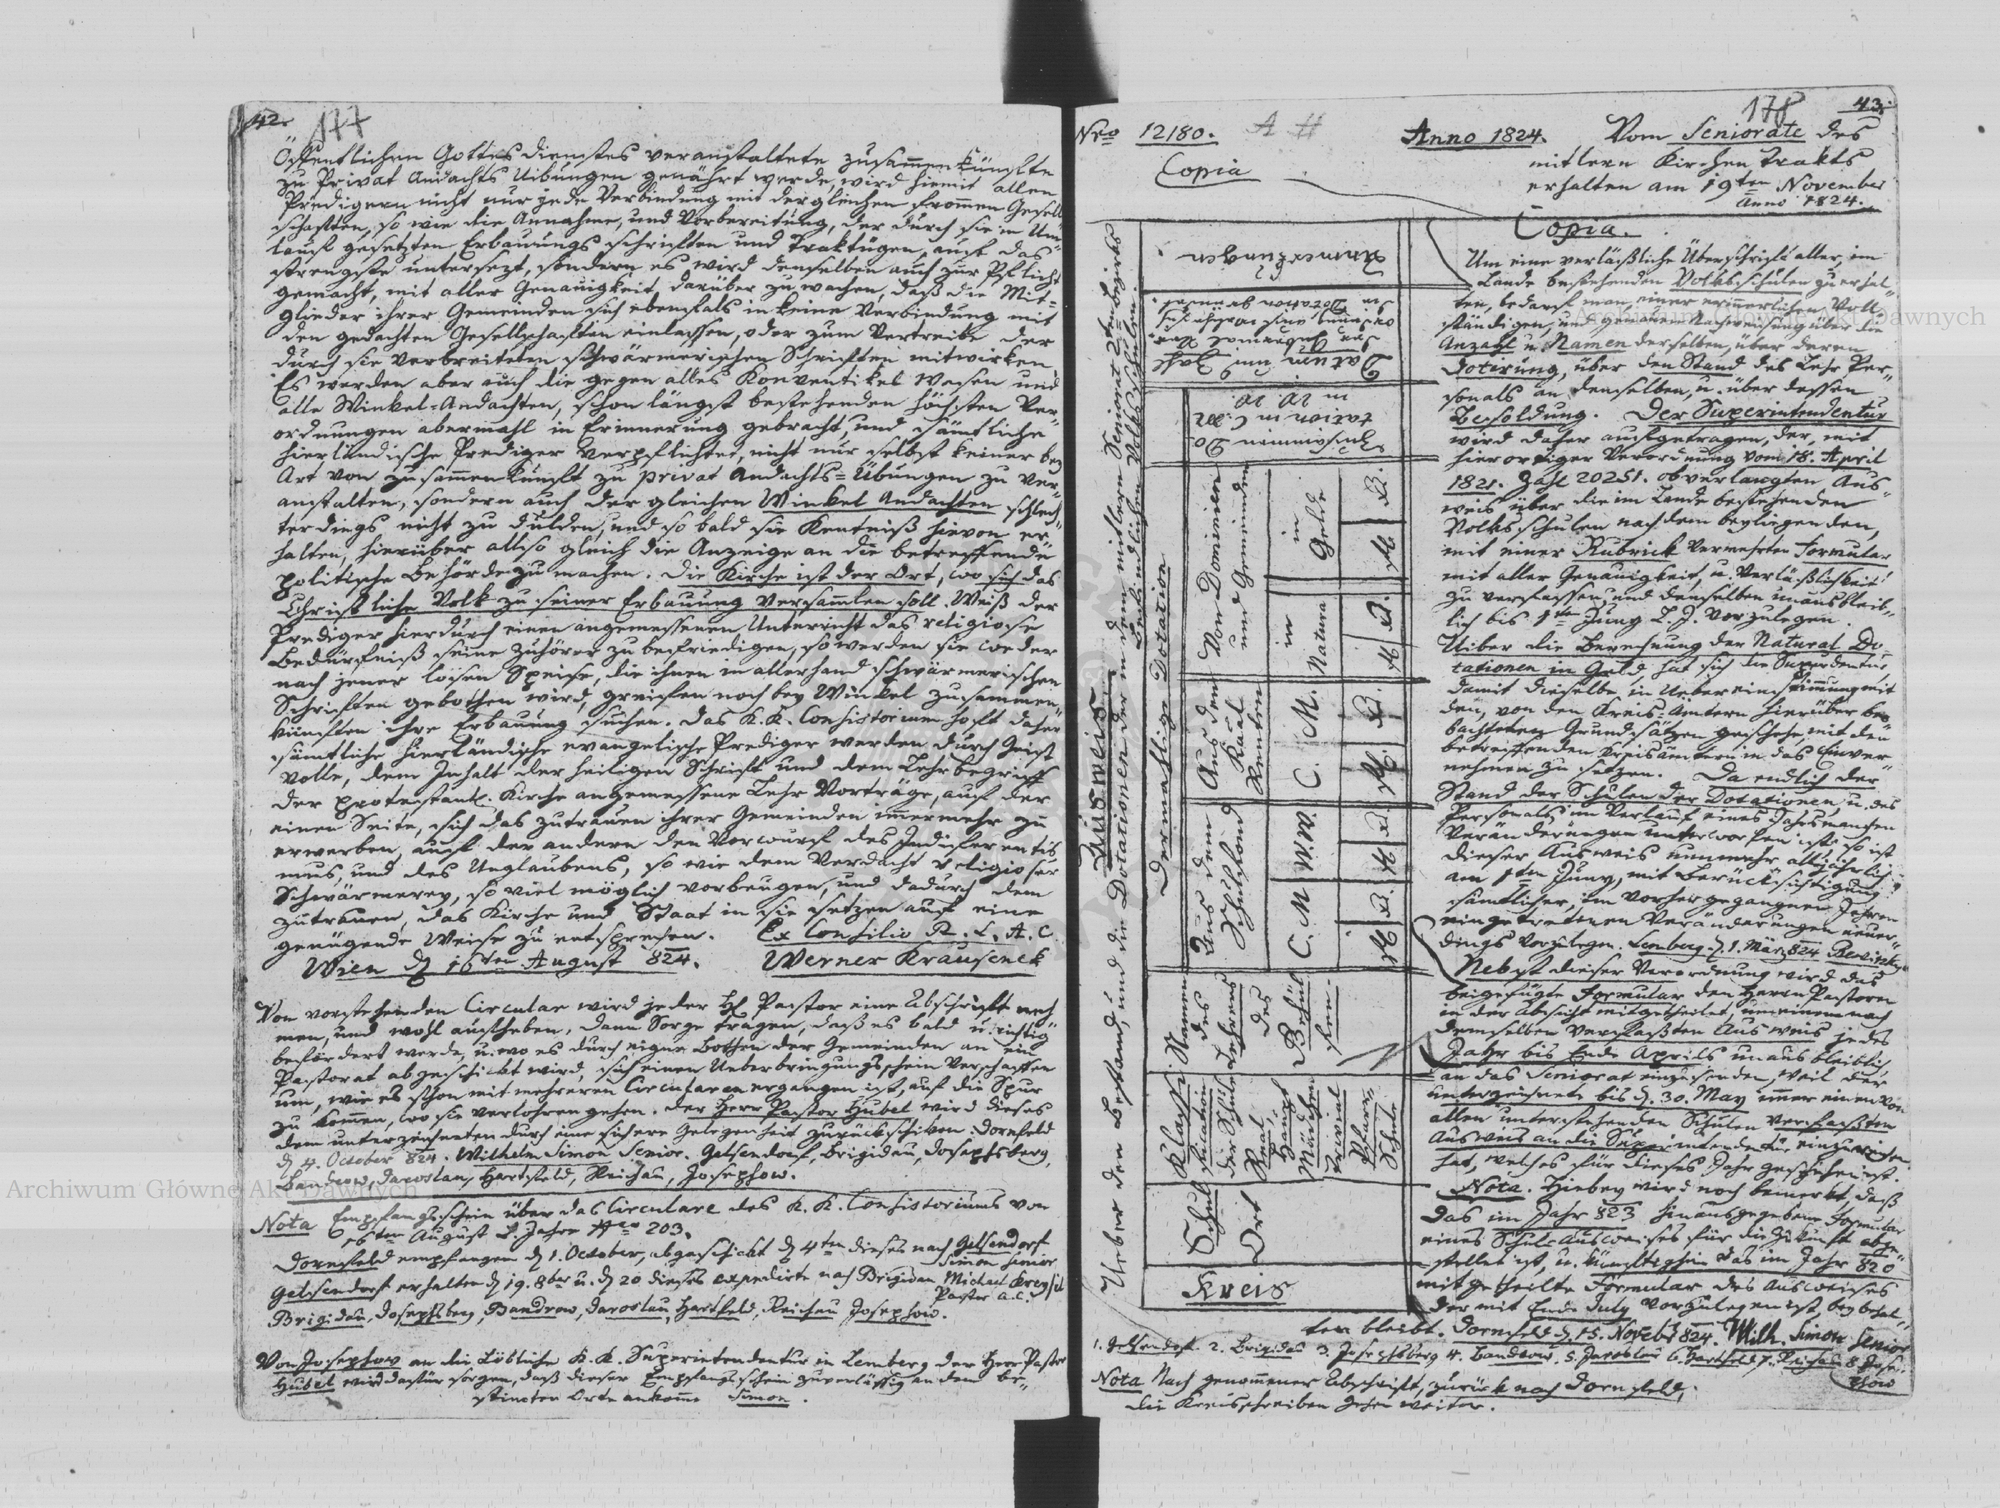 42.
177
Öffentlichen Gottes dienstes veranstaltete zusammenkünfte
zu Privat Andachts Uibungen genährt werde, wird hiemit allen
Predigern nicht nur jede Verbindung mit dergleichen frommen Gesell
schaften, so wie die Annahme, und Vorbereitung, der durch sie in Um
lauf gesetzten Erbauungs schriften und Traktätgen, auf das
strengste untersezt, sondern es wird denselben auch zur Pflicht
gemacht, mit aller Genauigkeit, darüber zu wachen, daß die Mit-
glieder ihrer Gemeinden sich ebenfals in keine Verbindung mit
den gedachten Gesellschaften einlassen, oder zum Vertreibe der
durch sie verbreiteten schwärmerischen Schriften mitwirken.
Es werden aber auch die gegen alles Konventikel Wesen und
alle Winkel-Andachten, schon längst bestehenden höchsten Ver-
ordnungen abermahl in Erinnerung gebracht, und sämtliche
hierländische Prediger verpflichtet, nicht nur selbst keiner bey
Art von zusammenkunft zu privat Andachts-Übungen zu ver-
anstalten, sondern auch der gleichen Winkel Andachten schlech-
terdings nicht zu dulden, und so bald sie Kentniß hievon er-
halten, hierüber allso gleich die Anzeige an die betreffende
politische Behörde zu machen. Die Kirche ist der Ort, wo sich das
Christliche Volk zu seiner Erbauung versammlen soll. Weiß der
Prediger hierdurch einen angemessenen Unterricht das religiose
Bedürfniß seine zuhörer zu befriedigen, so werden sie weder
nach jener losen Speise, die ihnen in allerhand schwärmerischen
Schriften gebothen wird, greiffen noch bey Winkel zusammen-
künften ihre Erbauung suchen. Das K.K. Consistorium hoft daher
sämtliche hierländische evangelische Prediger werden durch Geist
volle, dem Inhalt der heiligen Schrift und dem Lehrbegriff
der protestant. Kirche angemessene Lehr Vorträge, auf der
einen Seite, sich das zutrauen ihrer Gemeinden immermehr zu
erwerben, auf der andern den Vorwurf des Indifferentis
mus, und des Unglaubens, so wie dem Verdacht religioser
Schwärmerey, so viel möglich vorbeugen, und dadurch dem
zutrauen, das Kirche und Staat in sie setzen auf eine
genügende Weise zu entsprechen. Ex Consilio A. C.
Wien d. 16ten August 824. Werner Krauseneck
Von vorstehenden Circular wird jeder H. Pastor eine Abschrift neh
men, und wohl aufheben, dann Sorge tragen, daß es bald u. richtig
befördert werde, u. wo es durch eigne Bothen der Gemeinden an ein
Pastorat abgeschickt wird, sich einen Ueberbringungsschein verschaffen
um, wie es schon mit mehreren Circularen ergangen ist, auf die Spur
zu kommen, wo sie verlohren gehen. Der Herr Pastor Hubel wird dieses
dem unterzeichneten durch eine sichere Gelegenheit zurückschicken. Dornfeld
d. 4. October 824. Wilhelm Simon Senior. Gelsendorf, Brigidau, Josephsberg,
Bandrow, Jaroslau, Hartfeld, Reichau, Josephow.
Nota Empfangsschein über das Circulare des K. K. Consistoriums vom
16ten August l. Jahrs Nro 203.
Dornfeld empfangen d. 1. October, abgeschickt d. 4ten dieses nach Gelsendorf
Simon Senior
Gelsendorf erhalten d. 19. 8ber u. d. 20 dieses expedirte nach Brigidau Michael
Pastor A.C.
Brigidau, Josephsberg, Bandrow, Jaroslau, Hartfeld, Reichau, Josephow.
Von Josephow an die Löbliche K. K. Superintendentur in Lemberg der Herr Pastor
Hubel wird dafür sorgen, daß dieser Empfangsschein zuverlässig an dem be-
stimten Orte ankomme Simon.
178
43.
Nro 12180. A # Anno 1824. Vom Seniorate des
Copia mitlern Kirchen Trakts
erhalten am 19ten November
Anno 1824.
Ausweis
Ueber den Bestand, und die Dotationen der in dem mitlern Seniorat 2ten Bezirks
befindlichen Volksschulen.
Kreis
Schul
Ort
Klassi
fikation
der Schule
Real
Haupt
Mädchen
Trivial
Pfarr
Schule
Namen
des
Lehrers
des
Gehül
fen
Dermahlige Dotation
Aus dem
Schulfond
C. M W.W.
f x. f x.
Aus den
Kaal
Renten
C. M.
f x.
Von Dominien
und Gemeinden
in
Natura
in
Gelde
f x. f x.
Zusammen Do-
tation in C.M.
in
Datum und Zahl
der Gubernial Ver-
ordnung
Anmerkungen
Copia.
Um eine verläßliche Überschrift aller, im
Lande bestehenden Volksschulen zu erhal-
ten, bedarf man, einer Voll
ständigen, und genauen Nachweisung über die
Anzahl u. Namen derselben, über deren
Dotirung, über den Stand des Lehr Per-
sonals an denselben, u. über dessen
Besoldung. Der Superintendentur
wird daher aufgetragen, der, mit
hierortiger Verordnung vom 18. April
1821. Zahl 20251. obverlangten Aus-
weis über die im Lande bestehenden
Volksschulen nach dem beyliegenden,
mit einer Rubrick vermehrten Formular
mit aller Genauigkeit, u. Verläßlichkeit
zu verfassen, und denselben unausbleib-
lich bis 1ten Juny l. J. vorzulegen.
Uiber die Berechnung der Natural Do-
tationen in Geld, hat sich die Superdentur
damit dieselbe in Uebereinstimmung mit
den, von den Kreis-Ämtern hierüber beo-
bachteten Grundsätzen geschehe, mit den
betreffenden Kreisämtern in das Einver-
nehmen zu setzen. Da endlich der
Stand der Schulen der Dotationen u. des
Personals im Verlauf eines Jahrs mangen
Veränderungen unterworfen ist; so ist
dieser Ausweis nunmehr alljährlich
am 1ten Juny, mit Berücksichtigung
sämtlicher, im vorhergegangenen Jahren
eingetretenen Veränderungen neuer-
dings vorzulegen. Lemberg d. 1. März 824
Nebst dieser Verordnung wird das
beigefügte Formular den Herrn Pastoren
in der Absicht mitgetheilt, um einen nach
demselben verfaßten Ausweis jedes
Jahr bis Ende Aprils unausbleiblich
an das Seniorat einzusenden, weil der
unterzeichnete bis d. 30. May immer einen von
allen unterstehenden Schulen verfaßten
Ausweis an die Superintendentur einzureichen
hat, welches für dieses Jahr geschehen ist.
Nota. Hiebey wird noch bemerkt, daß
das im Jahr 823 hinausgegebene Formular
eines Schul-Ausweises für die Zukunft abge-
stellet ist, u. künftighin das im Jahr 820
mitgetheilte Formular des Ausweises
der mit Ende July vorzulegen ist, beybehal-
ten bleibt. Dornfeld d. 15. Novebr 824. Wilh. Simon Senior
1. Gelsendorf 2. Brigidau 3. Josephsberg 4. Bandrow, 5. Jaroslau 6. Hartfeld 7. Reichau 8. Jose-
phow
Nota Nach genommener Abschrift, zurück nach Dornfeld,
die Kreisschreiben gehen weiter.
Archiwum Główne Akt Dawnych
Archiwum Główne Akt Dawnych